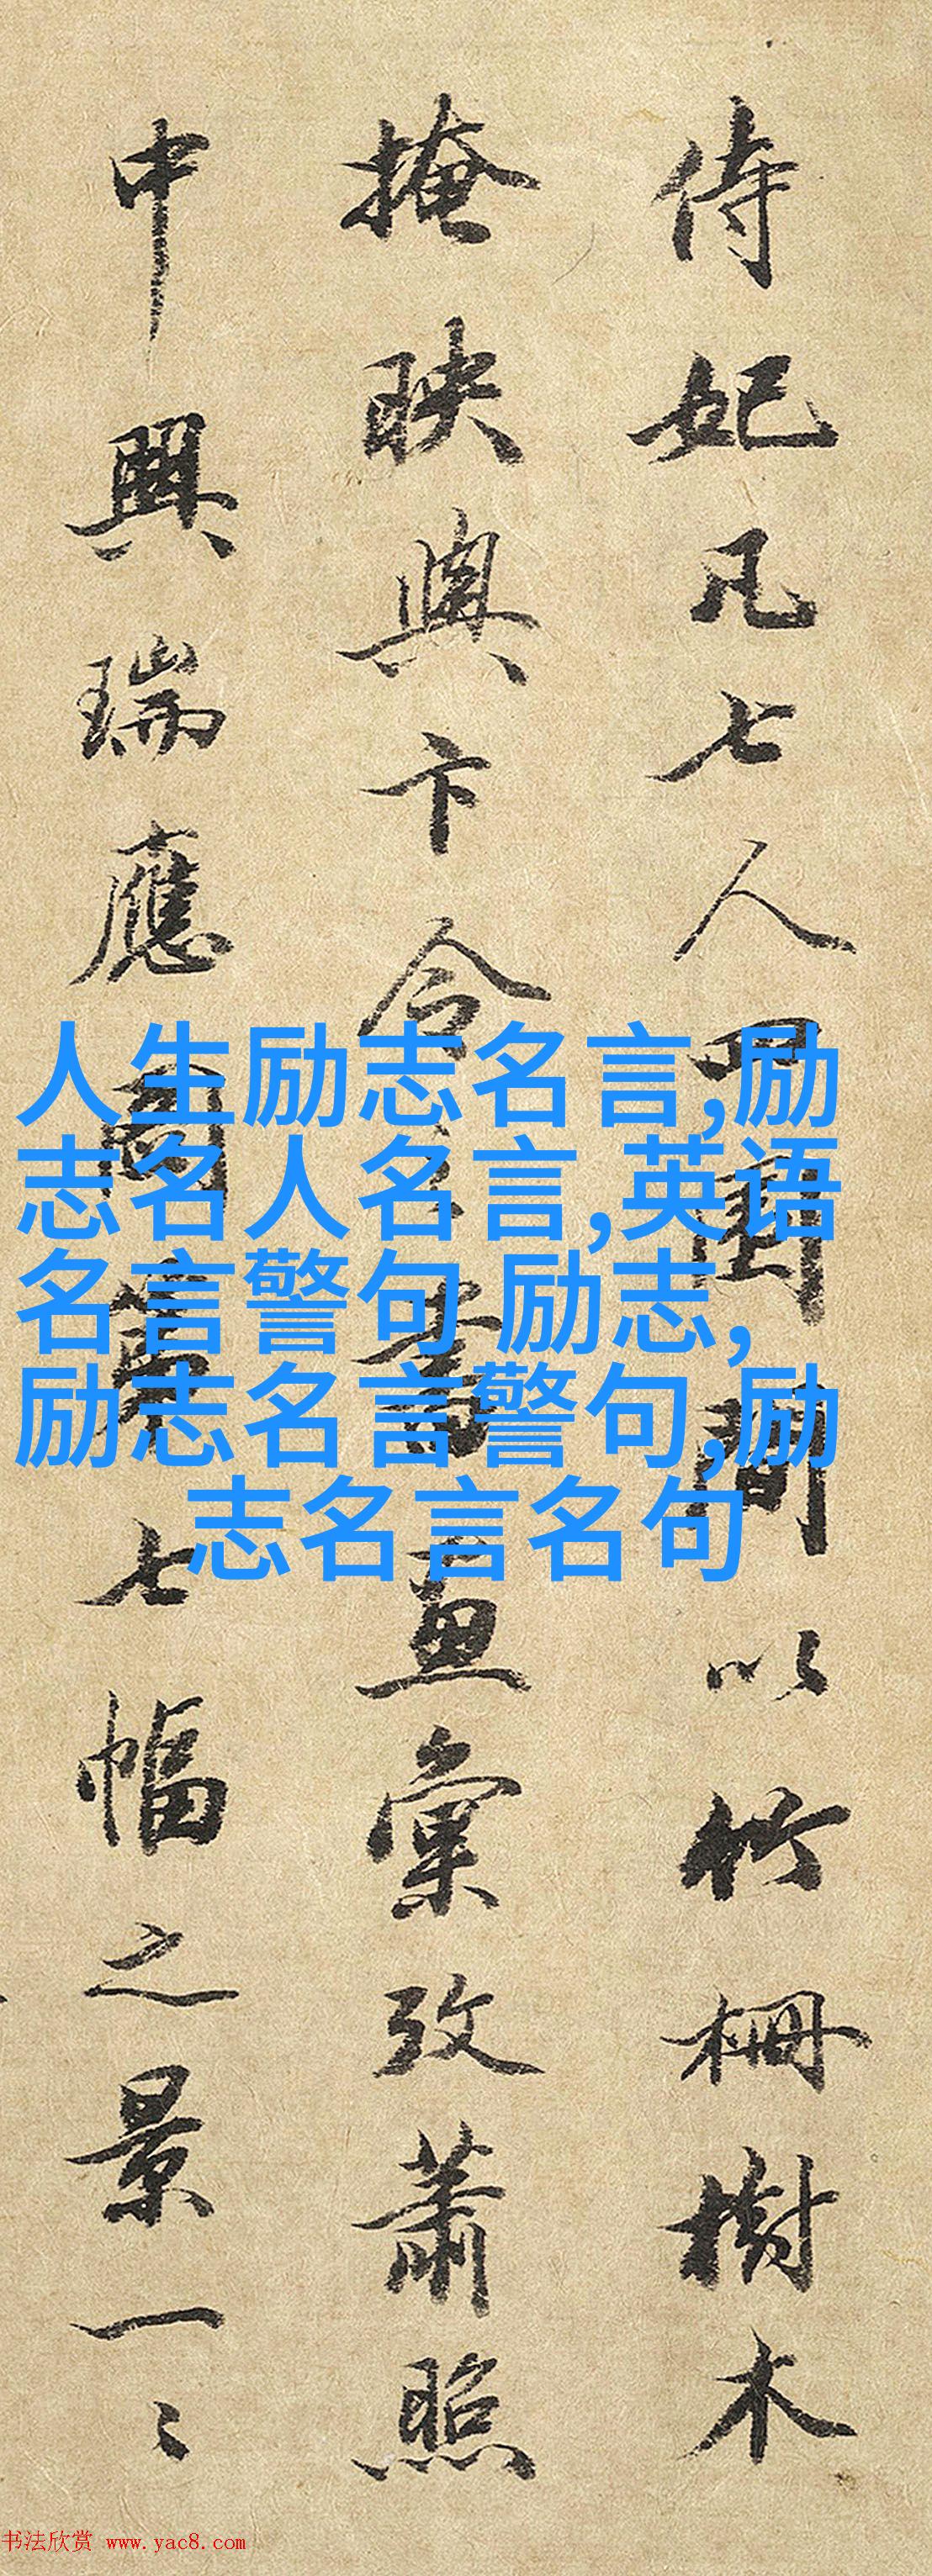 侍妃凡七人四圍間以竹柵樹木
掩映與卞令之書畫彙攷蕭照
中興瑞應圖第七幅之景一〻
人生励志名言,励
志名人名言,英语
名言警句 励志,
励志名言警句,励
志名言名句
书法欣赏 www.yac8.com